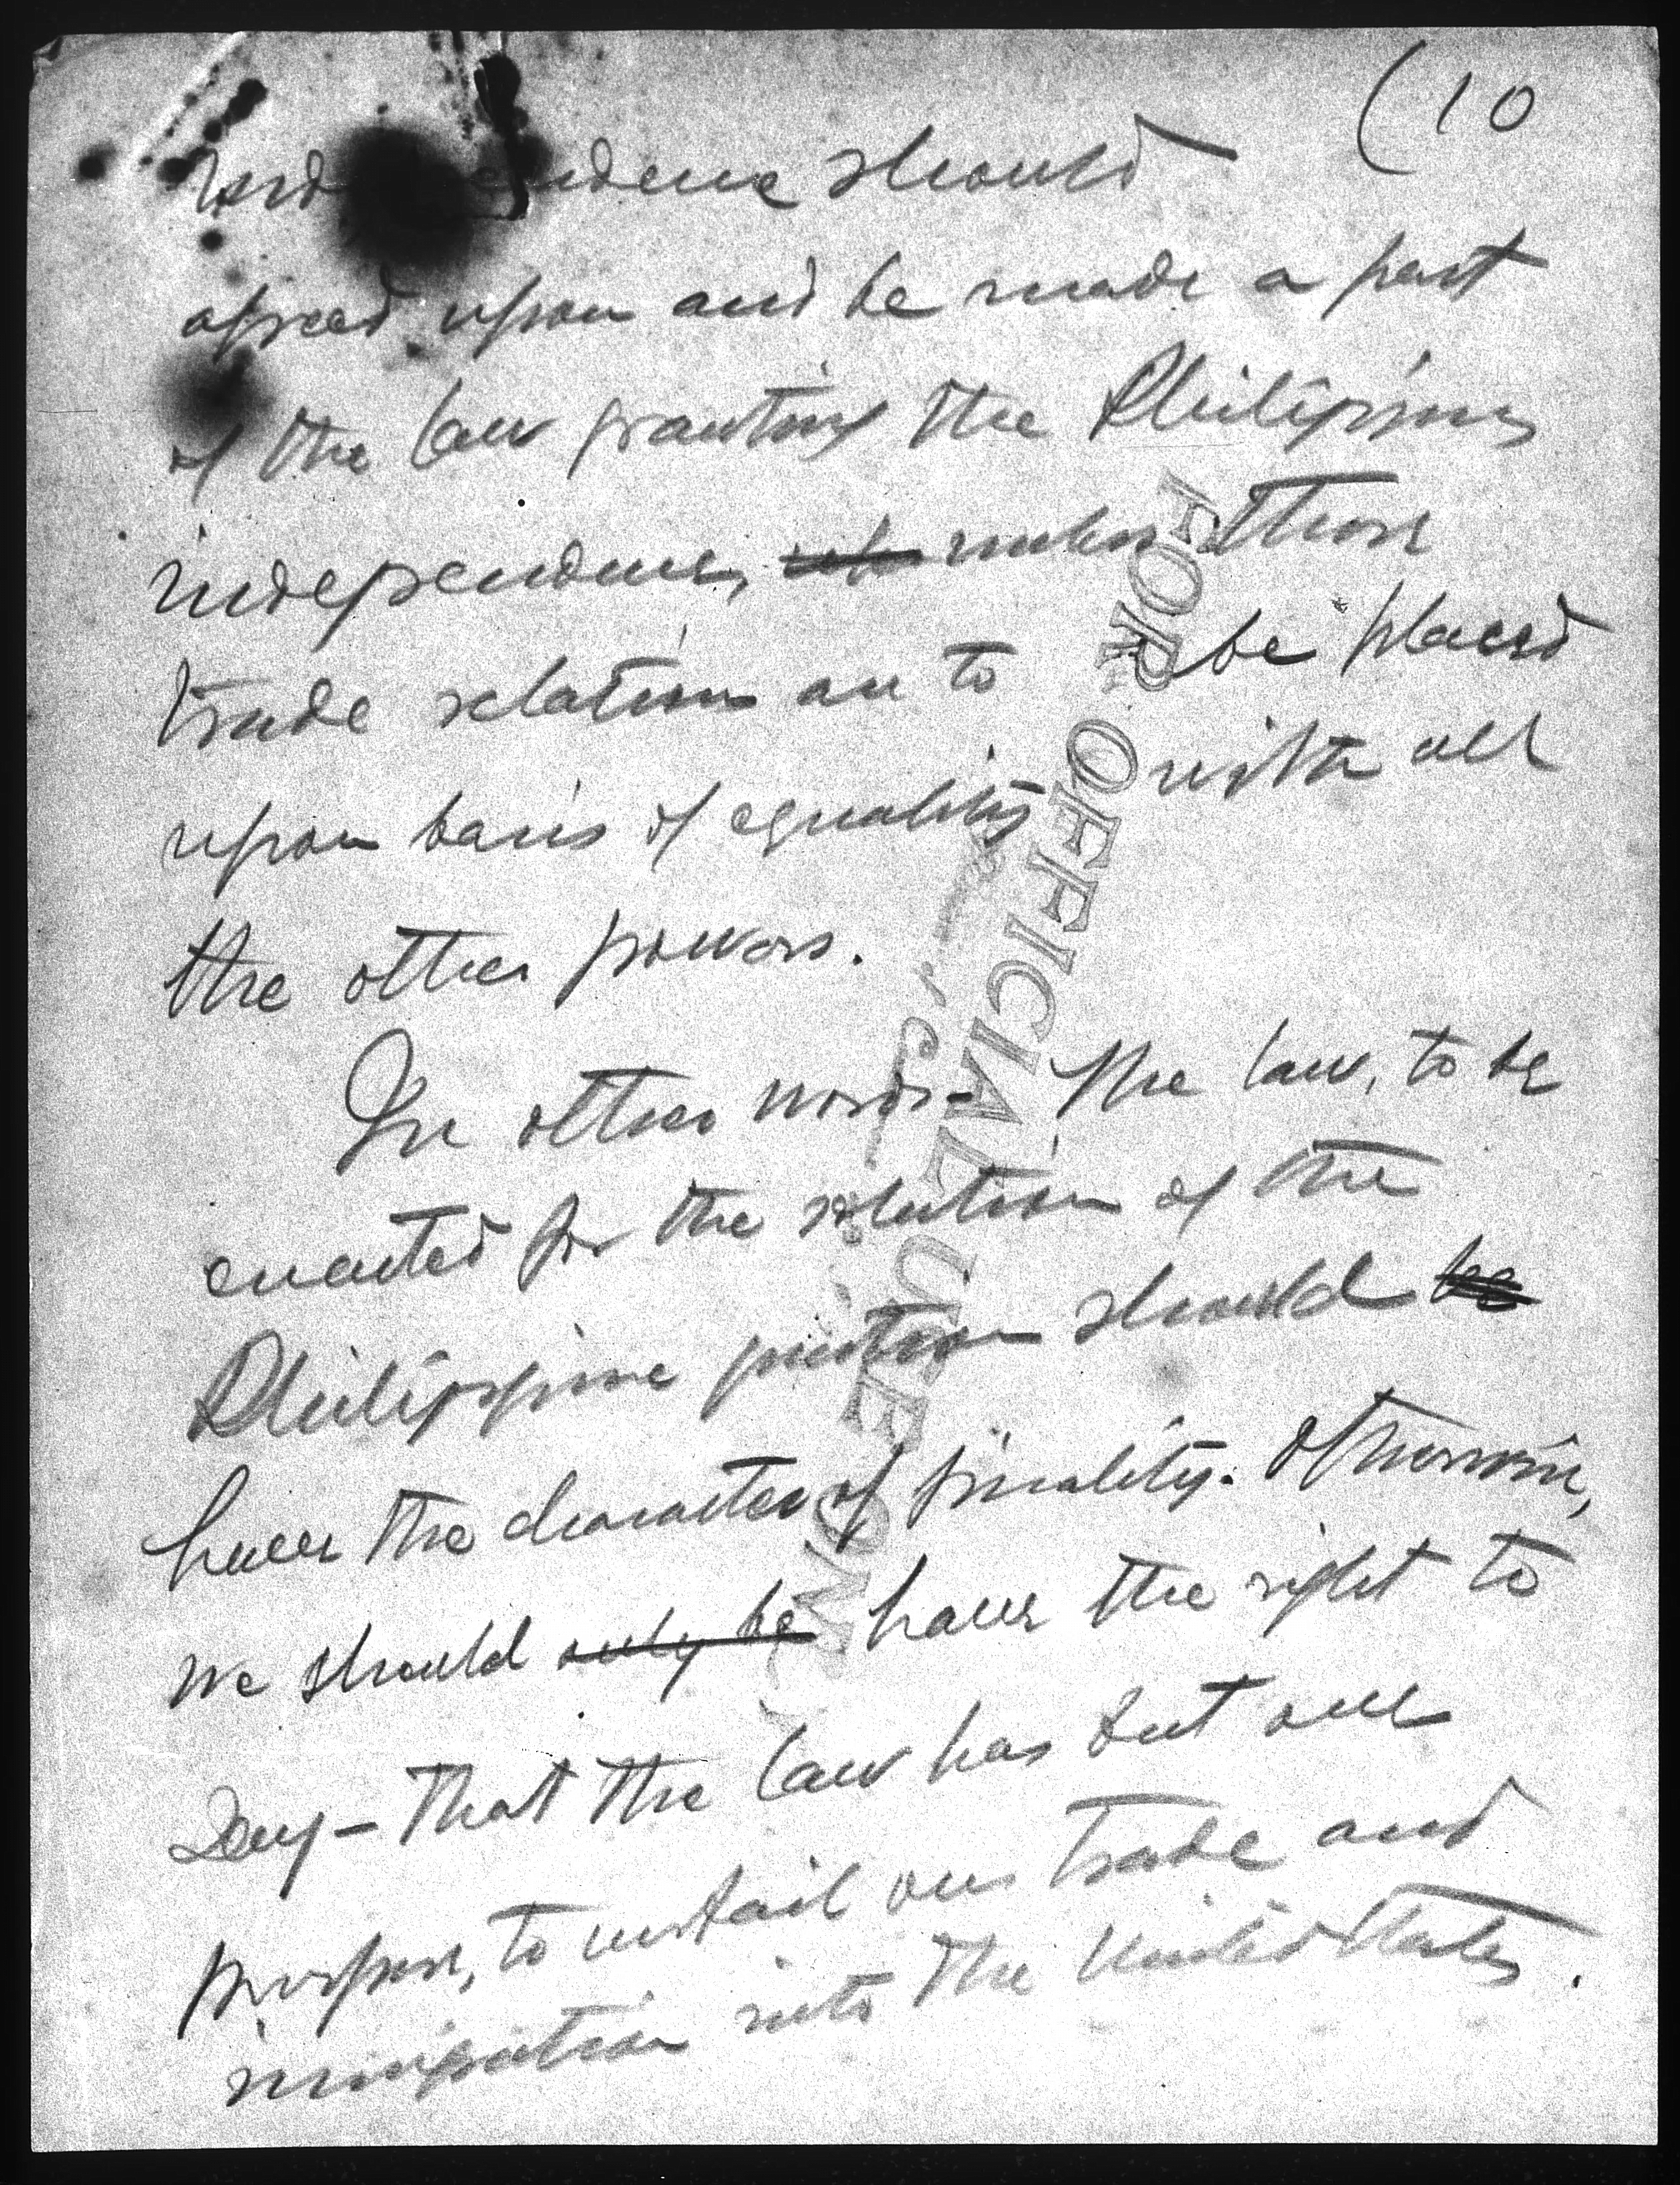 (10
independence should
agreed upon and be made a part
of the law granting the Philippines
independence, unless those
trade relations are to be placed
upon basis of equality with all
the other powers.
In other words - The law, to be
enacted for the solution of the
Philippine question should be
have the character of finality. Otherwise,
we should only be have the right to
say - that the law has but one
purpose, to curtail our trade and
inmigration into the United States.
FOR OFFICIAL USE ONLY